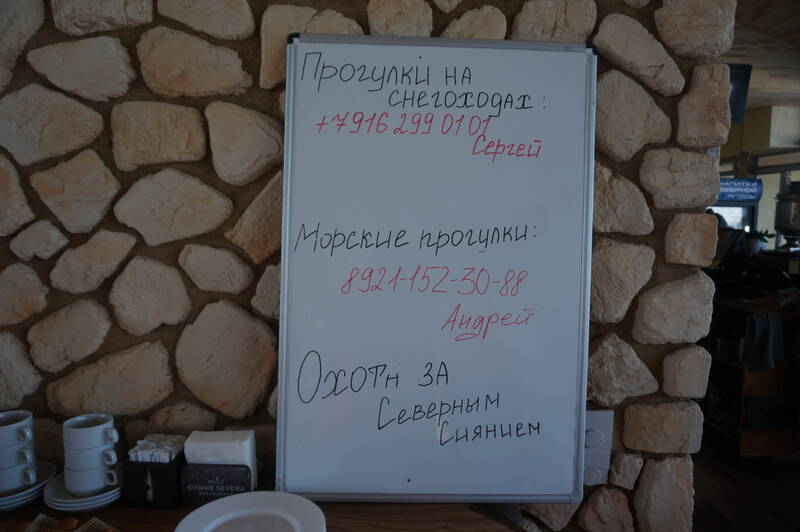 Прогулкі на
снегоходах:
+7916 299 01 01
Сергей
Морские прогулки:
8921-152-30-88
Андрей
Охотн за
Северным
Сиянием
SIYANIE SEVERA
НАПИТКИ
СЕВЕРНОЙ
ЯГОДЫ